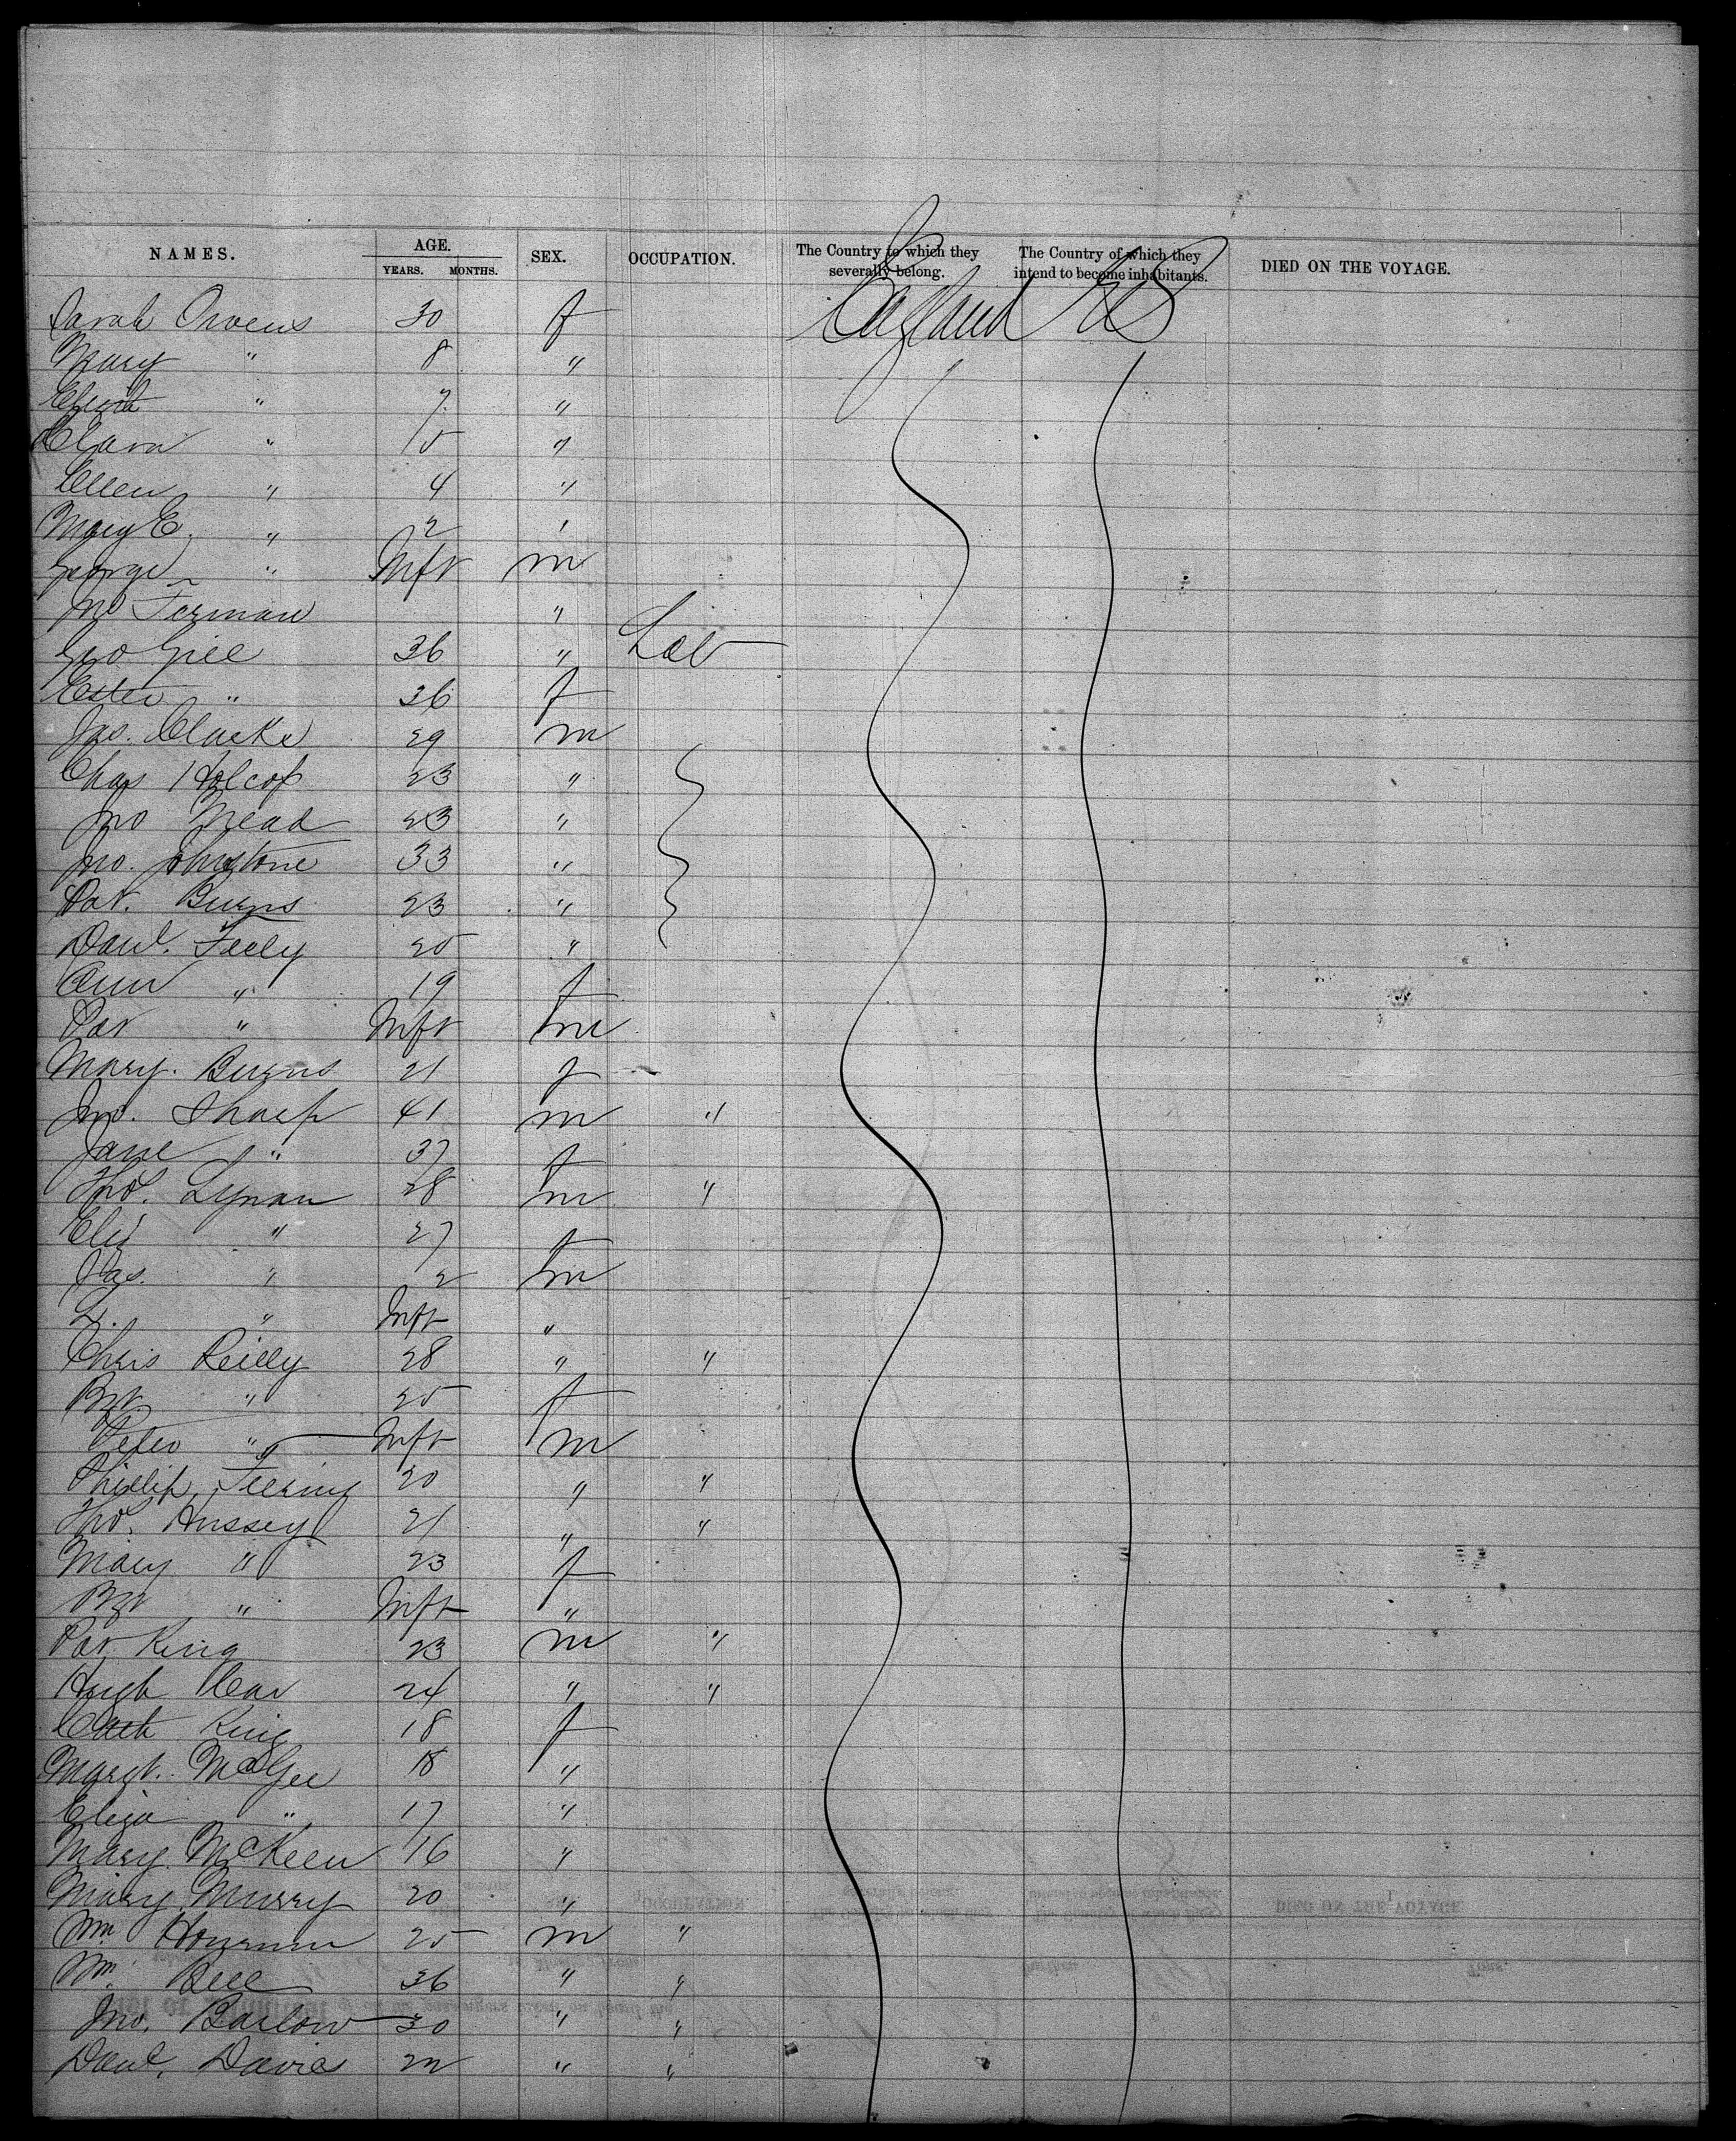 NAMES. AGE. SEX. OCCUPATION. The Country to which they severally belong. The Country of which they intend to become inhabitants. DIED ON THE VOYAGE.
YEARS. MONTHS.
Sarah Owens 30 f England US
Mary " 8 "
" 7 "
Clara " 5 "
Ellen " 4 "
Mary E. " 2 "
George " Inft m
Jno Forman "
Geo Gill 36 " Lab
Ester " 36 f
Jas. Clarke 29 m
Chas Holcof 23 "
Jno Mead 23 "
Jno. Johnstone 33 "
Pat. Burns 23 "
Danl. Feely 25 "
Ann " 19 f
Pat " Inft m
Mary Burns 21 f
Jno. Sharp 41 m "
Jane " 37 f
Thos. Lynan 28 m "
Eliz " 27 f
Jas. " 2 m
L. " Inft "
Chris Reilly 28 " "
Bgt " 25 f
Peter " Inft m
Phillip 20 " "
Thos. Hussey 21 " "
Mary " 23 f
Bgt " Inft "
Pat King 23 m "
Hugh 24 " "
Cath King 18 f
Margt. McGee 18 "
Eliza " 17 "
Mary McKeen 16 "
Mary Murry 20 "
Wm 25 m "
Wm. Bell 36 " "
Jno. Barlow 30 " "
Danl. Davies 22 " "